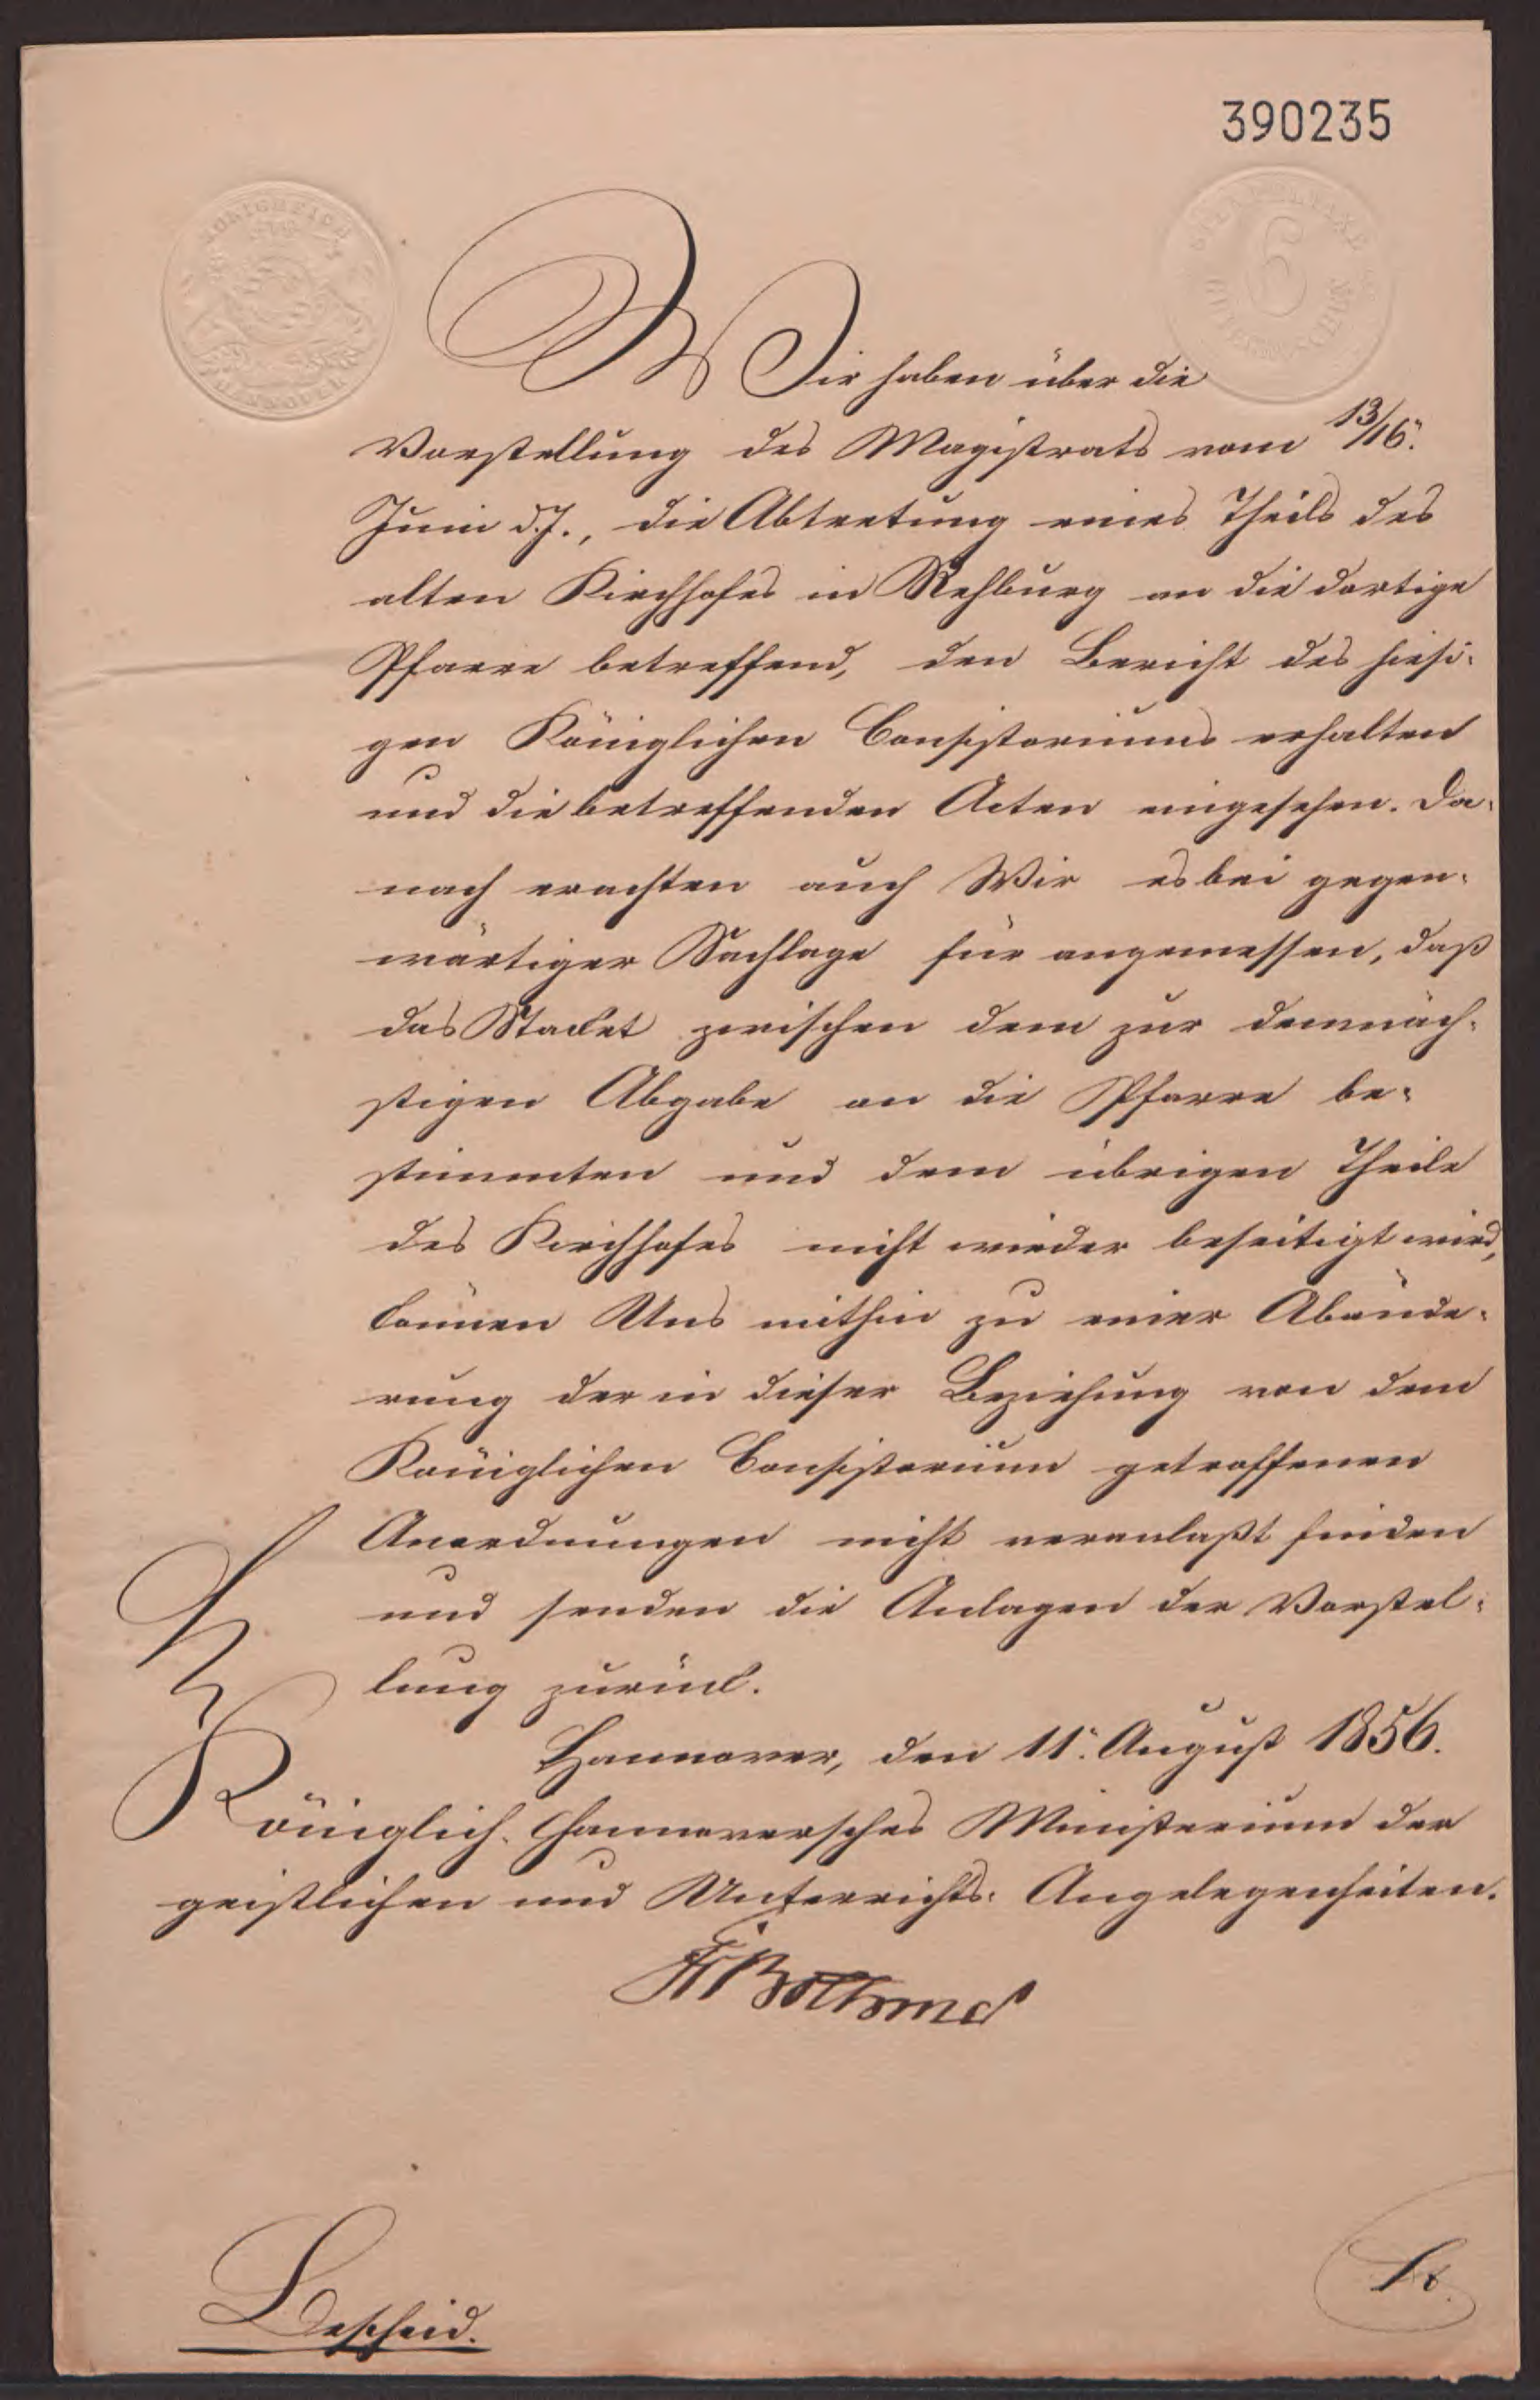 390235
KÖNIGREICH
HANNOVER
STEMPELTAXE
6
GUTEGROSCHEN
Wir haben über die
Vorstellung des Magistrats vom 13/16.
Juni d. J., die Abtretung eines Theils des
alten Kirchhofes in Rehburg an die dortige
Pfarre betreffend, den Bericht des hiesi-
gen Königlichen Consistoriums erhalten
und die betreffenden Acten eingesehen. Da-
nach erachten auch Wir es bei gegen-
wärtiger Sachlage für angemessen, daß
das Stacket zwischen dem zur demnäch-
stigen Abgabe an die Pfarre be-
stimmten und dem übrigen Theile
des Kirchhofes nicht wieder beseitigt wird,
können Uns mithin zu einer Abände-
rung der in dieser Beziehung von dem
Königlichen Consistorium getroffenen
Anordnungen nicht veranlaßt finden
und senden die Anlagen der Vorstel-
lung zurück.
Hannover, den 11. August 1856.
Königlich-Hannoversches Ministerium der
geistlichen und Unterrichts-Angelegenheiten.
Bothmer
Bescheid.